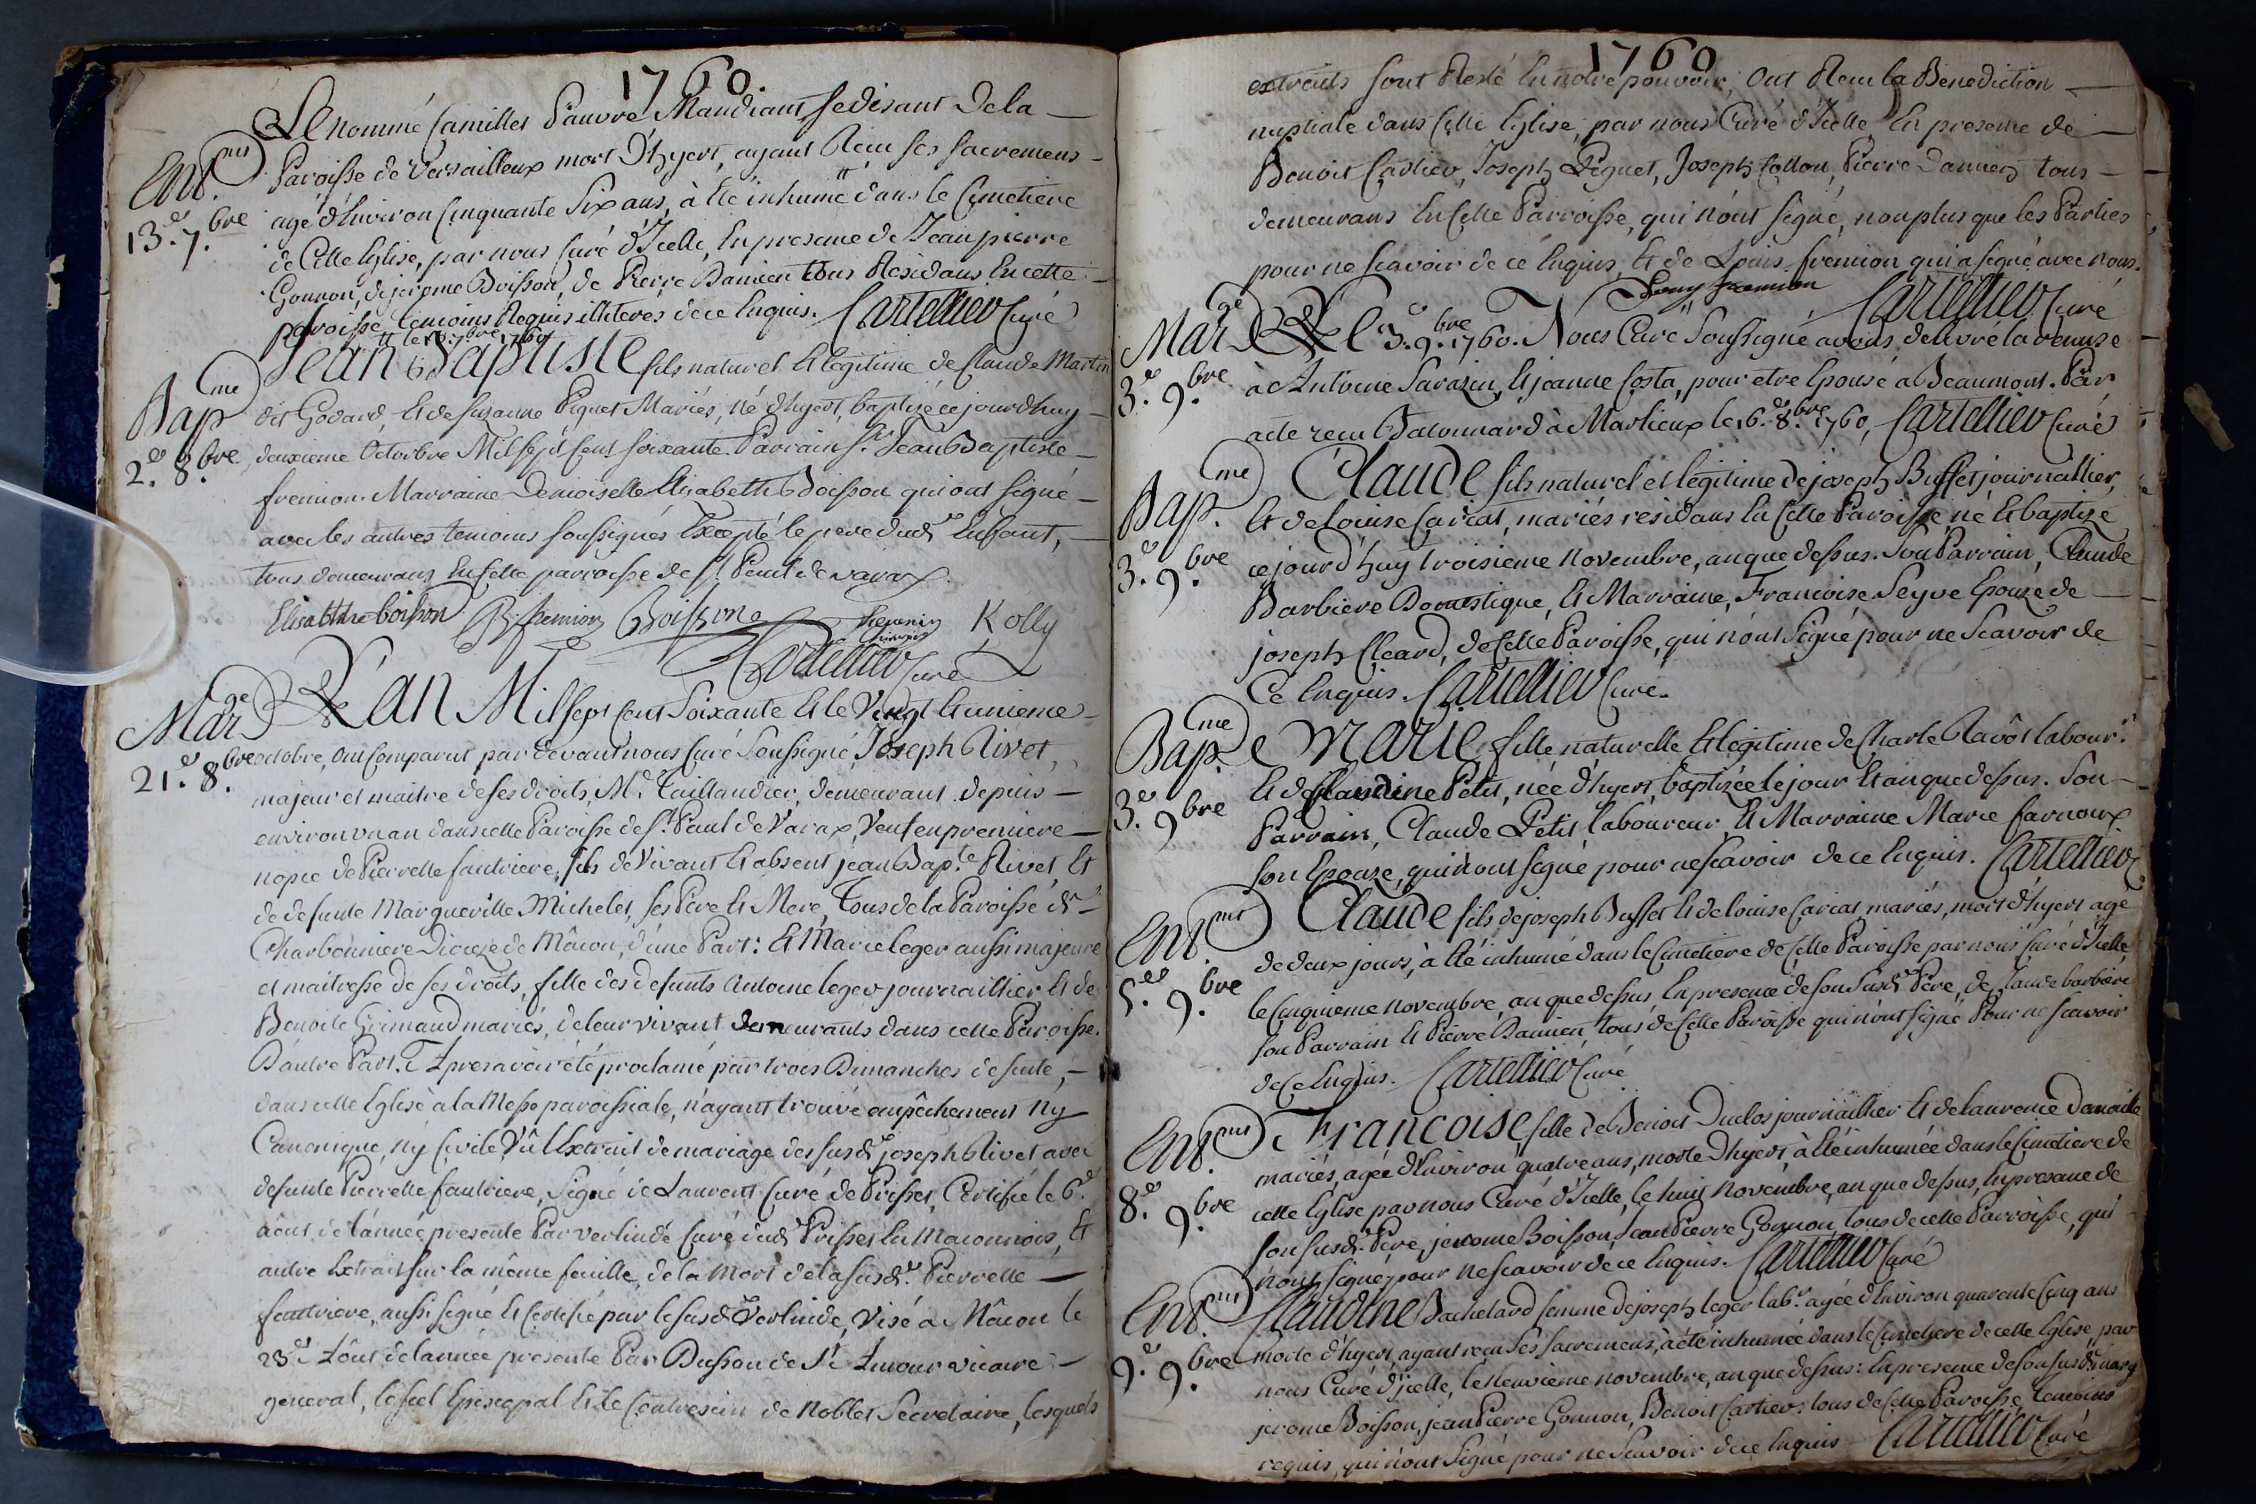 1760.
Le nommé Camilles Pauvre Mandiant se disant de la
Ent.mt Paroisse de Versailleux mort D'hyert, ayant Reçu ses sacremens
13.e 7.bre agé d'Environ Cinquante Six ans, à été inhumé tt dans le Cimetiere
de Cette Eglise, par nous Curé d'Icelle, En presence de Jean pierre
Gonnon, de jerome Boisson, de Pierre Damien tous Residans En cette
paroisse temoins Requis illiterés de ce Enquis. Cartellier Curé
tt le 13. 7bre 1760
Bap.me Jean Baptiste fils naturel et legitime de Claude Martin
dit Godard, et de Suzanne Piquet Mariés, né d'hyert, baptisé ce jourdhuy
2.e 8.bre deuxieme Octobre Mil sept Cent soixante. Parrain sr. Jean Baptiste
fremion. Marraine Demoiselle Elisabeth Boisson qui ont signé
avec les autres temoins soussignés Excepté le pere dud. Enfant,
tous demeurans En Cette parroisse de st. Paul de varax.
Elisabthe boisson B. fremion Boissone Kolly
Cartellier Curé
Mar.ge L'an Mil sept Cent Soixante et le Vingt et unieme
21.e 8.bre octobre, ont Comparut par devant nous Curé Soussigné, Joseph Rivet,
majeur et maitre de ses droits, Me. Taillandier, demeurant depuis
environ un an dans cette Paroisse de st. Paul de Varax, Veuf en premiere
nopce de Pierrette fautriere, fils de Vivant et absent jean Bap.te Rivet et
de defunte Marguerille Michelet, ses Père et Mere, Tous de la Paroisse de
Charbonniere Dioceze de Mâcon, d'une Part: et Marie leger aussi majeure
et maitresse de ses droits, fille des defunts Antoine leger journaillier et de
Benoite Grimaud mariés, de leur vivant demeurants dans cette Paroisse.
D'autre Part. Apres avoir été proclamé par trois Dimanches de suite,
dans cette Eglise à la Messe paroissiale, n'ayant trouvé empêchement Ny
Canonique, Ny Civile, Vû l'Extrait de mariage des susd. joseph Rivet avec
defunte Pierrette fautriere, Signé de Laurent Curé de Prisset, Certifié le 6.e
Aôut de l'année presente Par verlinde Curé dud. Prisset En Maconnois, et
autre Extrait sur la même feuille de la Mort de la susd. Pierrette
fautriere, aussi signé et Certifié par le susd. Verlinde, Visé a Mâcon le
23.e Aôut de l'année presente Par Dusson de St. Amour vicaire
general, le scel Episcopal et le Contresein de Noblet Secretaire, lesquels
1760
extraits sont Resté En notre pouvoir, Ont Recu la Benediction
nuptiale dans Cette Eglise, par nous Curé d'Icelle En presence de
Benoit Cartier, Joseph Piquet, Joseph Collon, Pierre Damien tous
demeurans En Cette Parroisse, qui n'ont signé, non plus que les Parties
pour ne scavoir de ce Enquis, et de Louis fremion qui a signé avec nous.
Louy fremion Cartellier Curé
Mar.ge Le 3. 9.bre 1760. Nous Curé Soussigné avons delivré la remise
3.e 9.bre à Antoine Sarazin, et jeanne Costa, pour etre Epousé a Beaumont. Par
acte recu Batonnard à Marlieux le 16.e 8.bre 1760, Cartellier Curé
Bap.me Claude fils naturel et legitime de joseph Buffet journallier,
et de Louise Cariat, mariés residans En Cette Paroisse né et baptizé
3.e 9.bre ce jourd'huy troisieme novembre, an que dessus. Son Parrain, Claude
Barbiere Domestique, et Marraine, Francoise Seyve Epouze de
joseph Cleard, de Cette Paroisse, qui n'ont Signé pour ne Scavoir de
Ce Enquis. Cartellier Curé.
Bap.me Marie fille naturelle et legitime de Charle Ravôt labour.r
et de Claudine Petit, née d'hyert, baptizée le jour et an que dessus. Son
3.e 9.bre Parrain, Claude Petit laboureur, et Marraine Marie farnoux
son Epouze, qui n'ont signé pour ne scavoir de ce Enquis. Cartellier C.
Ent.mt Claude fils de joseph Buffet et de louise Cariat mariés, mort d'hyert agé
de deux jours, à été inhumé dans le Cimetiere de Cette Paroisse par nous Curé d'Icelle
5.e 9.bre le Cinquieme novembre, an que dessus En presence de son susd. Père, de Claude barbiere
son Parrain et Pierre Damien, tous de Cette Paroisse qui n'ont signé Pour ne scavoir
de Ce Enquis. Cartellier Curé
Ent.mt Francoise fille de Benoit Duclos journaillier et de laurence Danoille
mariés, agée d'Environ quatre ans, morte Dhyert, à été inhumée dans le Cimetiere de
8.e 9.bre cette Eglise par nous Curé d'Icelle, le huit Novembre, an que dessus, En presence de
son susd. Père, jerome Boisson, Jean Pierre Gonnon, tous de cette Parroisse, qui
n'ont signé pour ne scavoir de ce Enquis. Cartellier Curé
Ent.mt Claudine Bachelard femme de joseph leger lab.r agée d'Environ quarente Cinq ans
morte d'hyert, ayant recu Ses sacremens, a été inhumée dans le Cimetiere de cette Eglise, par
9.e 9.bre nous Curé d'jcelle, le Neuvieme novembre, an que dessus: En presence de son susd. mary
jerome Boisson, jean Pierre Gonnon, Benoit Cartier: tous de Cette Paroisse, temoins
requis, qui n'ont signé pour ne Scavoir de ce Enquis Cartellier Curé